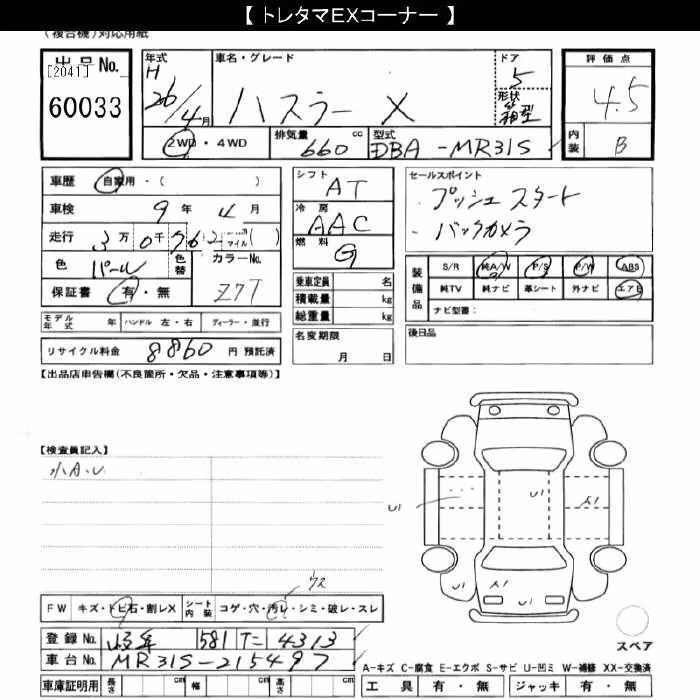 【 トレタマEXコーナー 】
(複合機)対応用紙
出品No. [2041] 60033
年式 H 26/4月
車名・グレード ハスラー X
ドア 5
形状 箱型
評価点 4.5
2WD・4WD
排気量 660 cc
型式 DBA-MR31S
内装 B
車歴 自家用・( )
車検 9年 4月
走行 3万 0千 762 マイル( )
色 パール 色替 カラーNo. Z7T
保証書 有・無
シフト AT
冷房 AAC
燃料 G
乗車定員 名
積載量 kg
総重量 kg
セールスポイント
・プッシュスタート
・バックカメラ
装備品 S/R 純A/W P/S P/W ABS
純TV 純ナビ 革シート 外ナビ エアB
ナビ型番:
モデル年式 年 ハンドル 左・右 ディーラー・並行
名変期限 月 日
後日品
リサイクル料金 8860 円 預託済
【出品店申告欄(不良箇所・欠品・注意事項等)】
【検査員記入】
小A.U
U1 U1 A1
U1 A1 U1
ウス
FW キズ・トビ石・割レX シート内装 コゲ・穴・汚レ・シミ・破レ・スレ
登録No. 581 4313
車台No. MR31S-215497
スペア
A-キズ C-腐食 E-エクボ S-サビ U-凹ミ W-補修 XX-交換済
車庫証明用 長さ cm 幅 cm 高さ cm
工具 有・無 ジャッキ 有・無